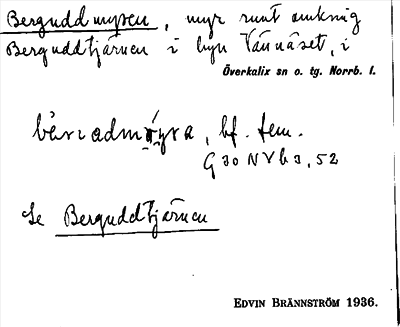 Berguddmyren, myr runt omkring
Berguddtjärnen i byn Vännäset, i
Överkalix sn o. tg. Norrb. l.
bf. fem.
G 30 NV b 3, 52
Se Berguddtjärnen
EDVIN BRÄNNSTRÖM 1936.